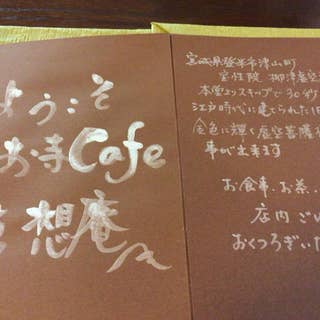 ようこそ
お寺Cafe
想庵
宮城県登米市津山町
宝性院 柳津虚空
本堂よりスロープで30秒
江戸時代に建てられた
金色に輝く虚空菩薩
事が出来ます
お食事、お茶、
店内ごゆ
おくつろぎいた